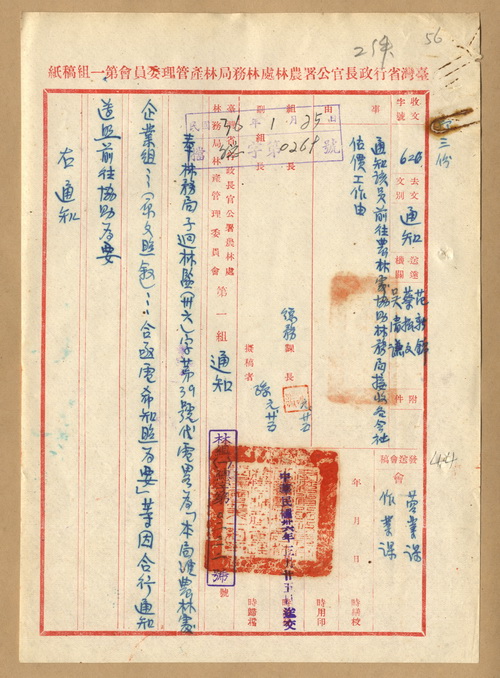 56
臺灣省行政長官公署農林處林務局林產管理委員會第一組稿紙
三份
收文
字號
626
去文
文別
通知
送達
機關
范新錦
葉振文
吳清謙
附
件
事
由
通知該員前往農林處協助林務局接收各會社
估價工作由
民國36年1月25日
檔 字第0269號
組長
組長
課長
總務
撰稿者
元廿五
發送會稿
會
營業課
作業課
年 月 日
時繕校
時用印
時歸檔
臺灣省行政長官公署農林處
林務局林產管理委員會
第一組
通知
中華民國卅六年
號
奉林務局子迴林監(卅六)字第39號代電畧為「本局准農林處
企業組…(原文照敘)…合函電希知照為要」等因合行通知
遵照前往協助為要
右通知